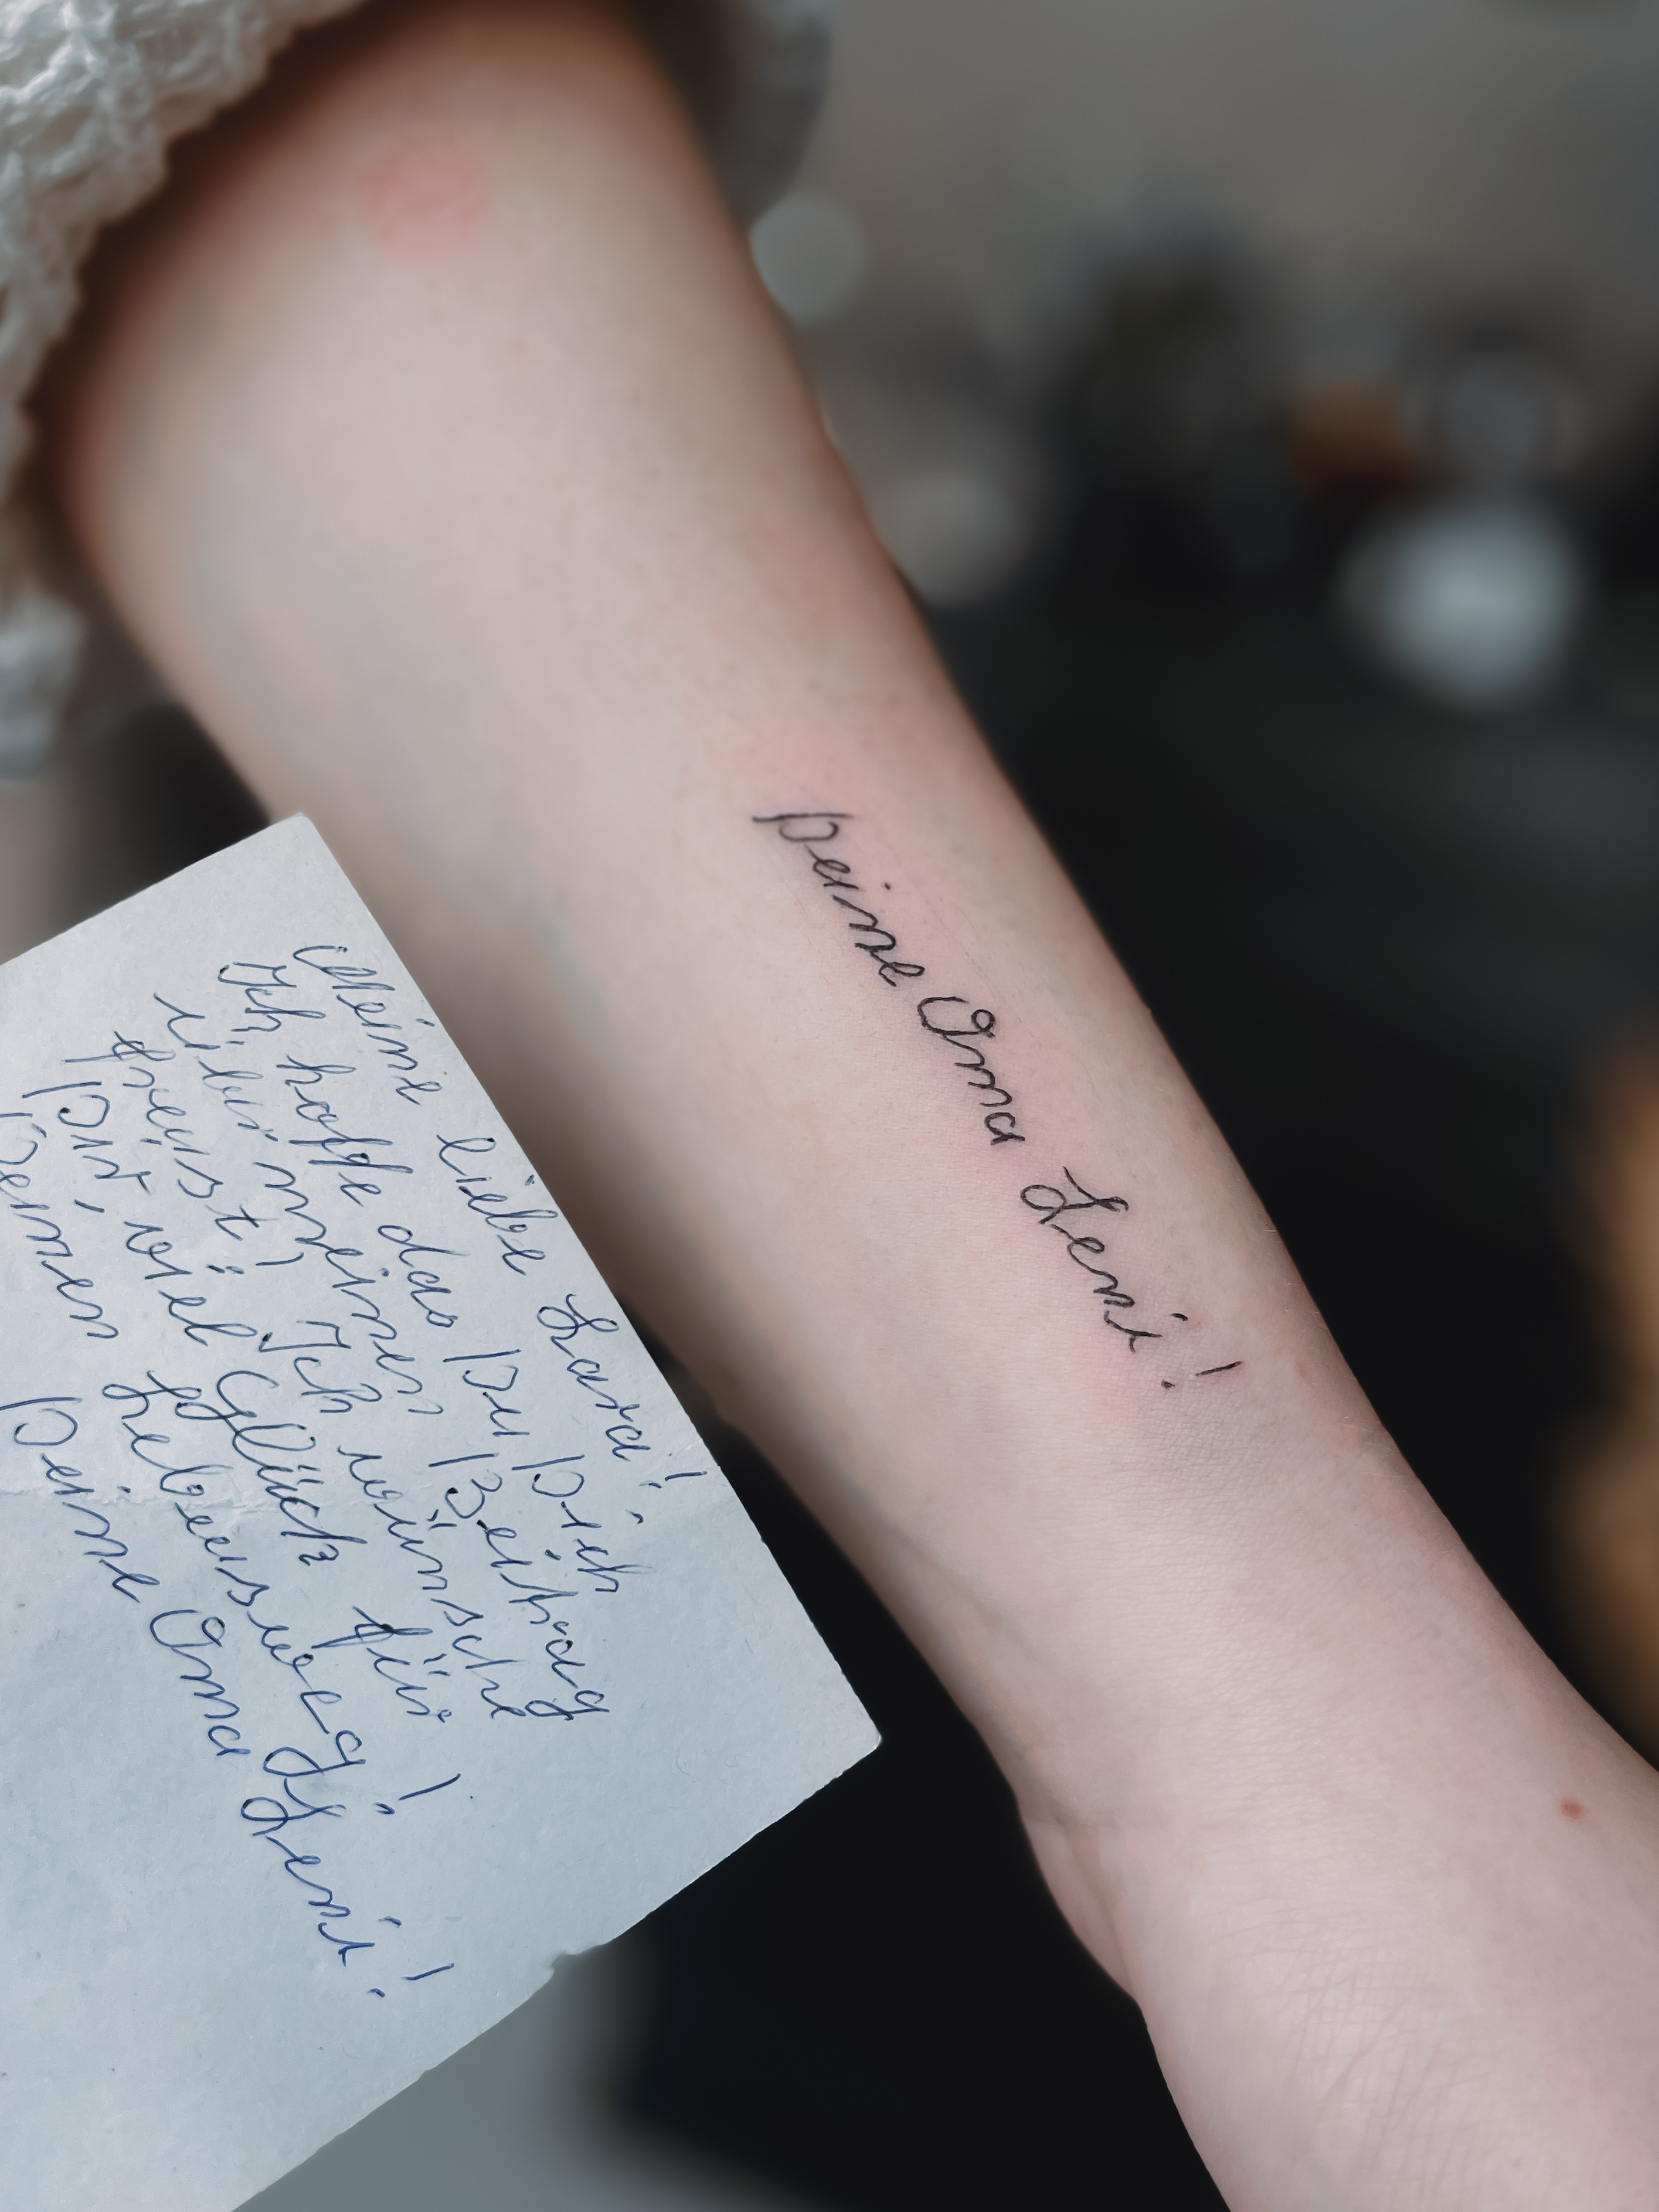 Meine liebe Lara!
Ich hoffe das Du Dich
über meinen Beitrag
freust! Ich wünsche
Dir, viel Glück für
Deinen Lebensweg!
Deine Oma Leni!
Deine Oma Leni!